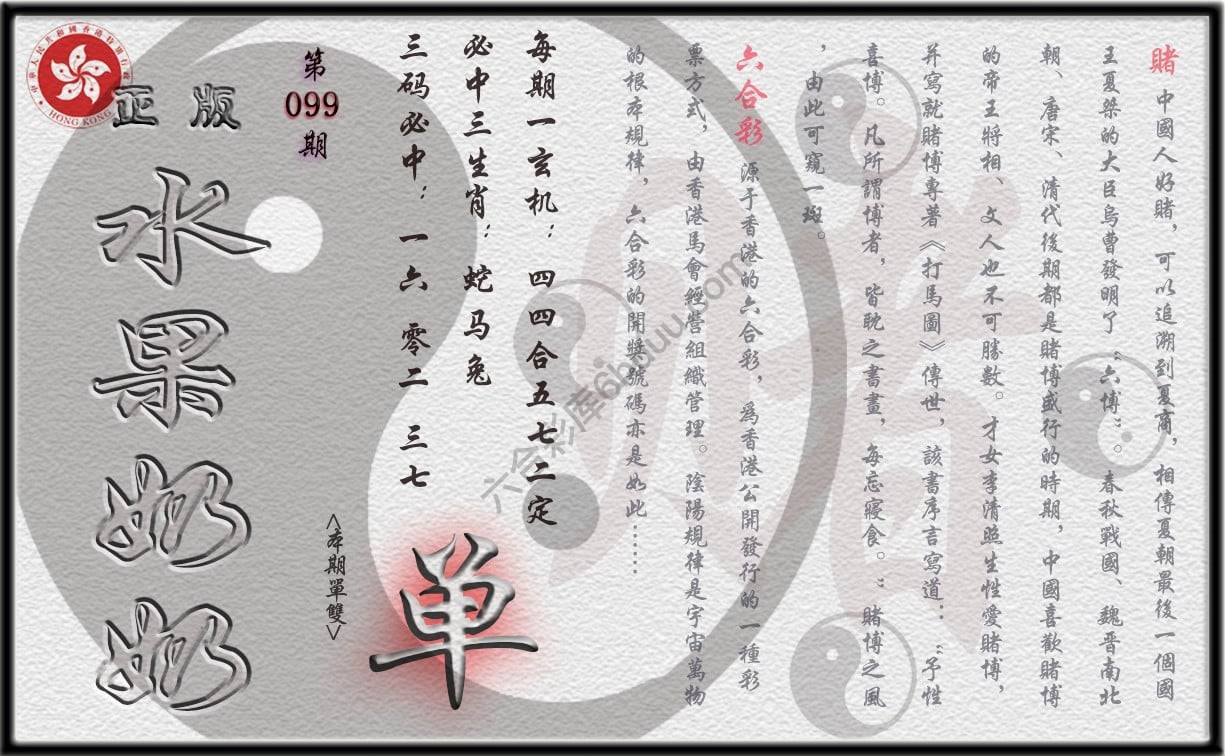 賭 中國人好賭，可以追溯到夏商，相傳夏朝最後一個國
王夏桀的大臣烏曹發明了“六博”。春秋戰國、魏晉南北
朝、唐宋、清代後期都是賭博盛行的時期，中國喜歡賭博
的帝王將相、文人也不可勝數。才女李清照生性愛賭博，
并寫就賭博專著《打馬圖》傳世，該書序言寫道：“予性
喜博。凡所謂博者，皆耽之晝晝，每忘寢食。”賭博之風
，由此可窺一斑。
六合彩 源于香港的六合彩，爲香港公開發行的一種彩
票方式，由香港馬會經營組織管理。陰陽規律是宇宙萬物
的根本規律，六合彩的開獎號碼亦是如此……
每期一玄机：四四合五七二定
必中三生肖：蛇马兔
三码必中：一六 零二 三七
单
<本期單雙>
第
099
期
正版
水果奶奶
HONG KONG
六合彩库6hduu.com